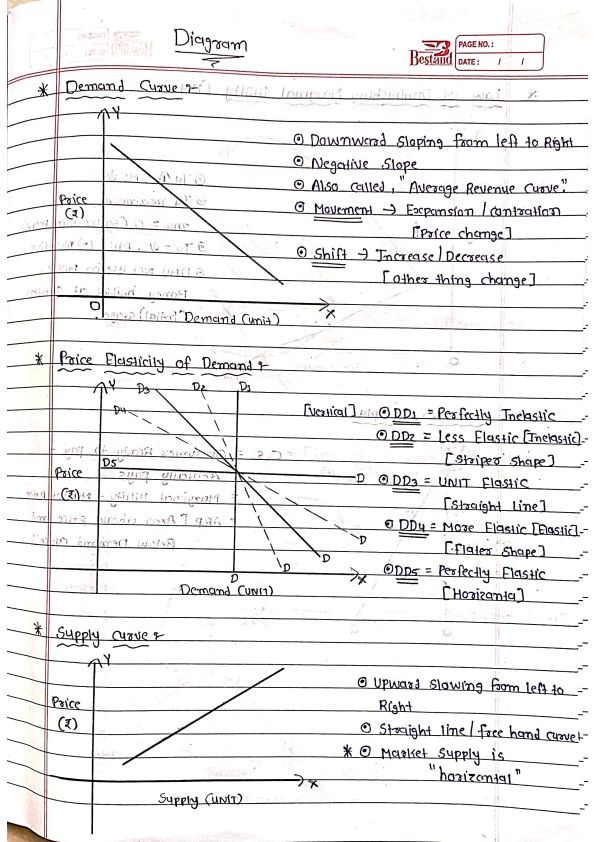 Diagram
Bestand
PAGE NO.:
DATE: / /
* Demand Curve :-
Y
Price
(₹)
O
X
Demand (unit)
⊙ Downward Sloping from left to Right
⊙ Negative Slope
⊙ Also called, "Average Revenue Curve."
⊙ Movement → Expansion / contration
[Price change]
⊙ Shift → Increase / Decrease
[other thing change]
* Price Elasticity of Demand :-
Y D3 D2 D1
D4
D5
Price
(₹)
D
D
D
D
D
X
Demand (UNIT)
[vertical] ⊙ DD1 = Perfectly Inelastic
⊙ DD2 = Less Elastic [Inelastic]
[Striper shape]
⊙ DD3 = UNIT Elastic
[Straight line]
⊙ DD4 = More Elastic [Elastic]
[flater shape]
⊙ DD5 = Perfectly Elastic
[Horizanta]
* Supply curve :-
Y
Price
(₹)
X
Supply (UNIT)
⊙ Upward slowing from left to
Right
⊙ Straight line / free hand curve
* ⊙ Market Supply is
"horizontal"